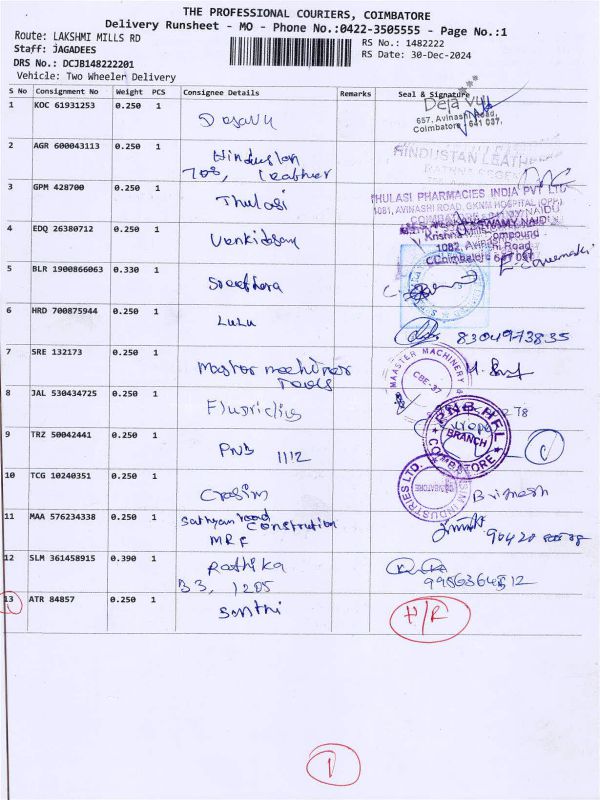 THE PROFESSIONAL COURIERS, COIMBATORE
Delivery Runsheet - MO - Phone No.:0422-3505555 - Page No.:1
Route: LAKSHMI MILLS RD
RS No.: 1482222
Staff: JAGADEES
RS Date: 30-Dec-2024
DRS No.: DCJB148222201
Vehicle: Two Wheeler Delivery
S No Consignment No Weight PCS Consignee Details Remarks Seal & Signature
1 KOC 61931253 0.250 1 Dejavu
Deja Vu
657, Avinashi Road,
Coimbatore - 641 037.
2 AGR 600043113 0.250 1 Hinduslan
708, Leather
HINDUSTAN LEATHER
3 GPM 428700 0.250 1 Thulasi
THULASI PHARMACIES INDIA PVT LTD
1081, AVINASHI ROAD, GKNM HOSPITAL (OPP)
4 EDQ 26380712 0.250 1 Venkidsam
Krishna Mills Compound
1082, Avinashi Road
Coimbatore 641 037
5 BLR 1900866063 0.330 1 Sreethara
6 HRD 700875944 0.250 1 LuLu
8304973835
7 SRE 132173 0.250 1 Mastor machiner
Tools
MAASTER MACHINERY
CBE-37
8 JAL 530434725 0.250 1
9 TRZ 50042441 0.250 1 PNB 1112
PNB HFL
BRANCH
COIMBATORE
10 TCG 10240351 0.250 1 Grasim
INDUSTRIES LTD.
11 MAA 576234338 0.250 1 Sathyam road
Constrution
MRF
12 SLM 361458915 0.390 1 Rathika
B3, 1205
9956364512
13 ATR 84857 0.250 1 Santhi
H/R
1